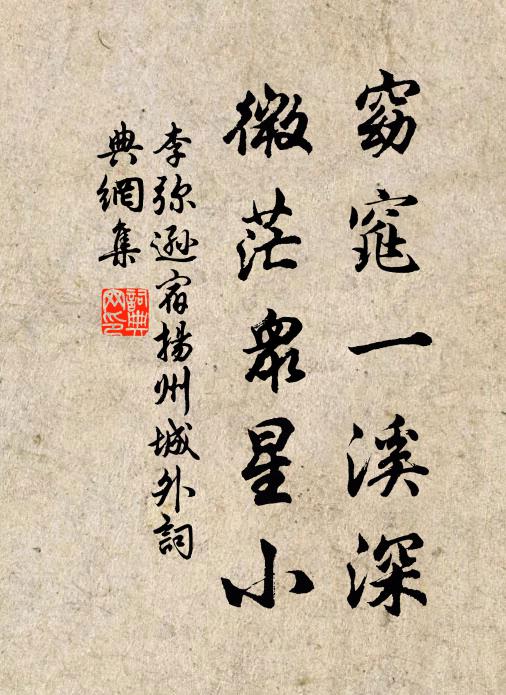 窈窕一溪深
微茫眾星小
李弥遜宿揚州城外詞
典網集
詞典
网印